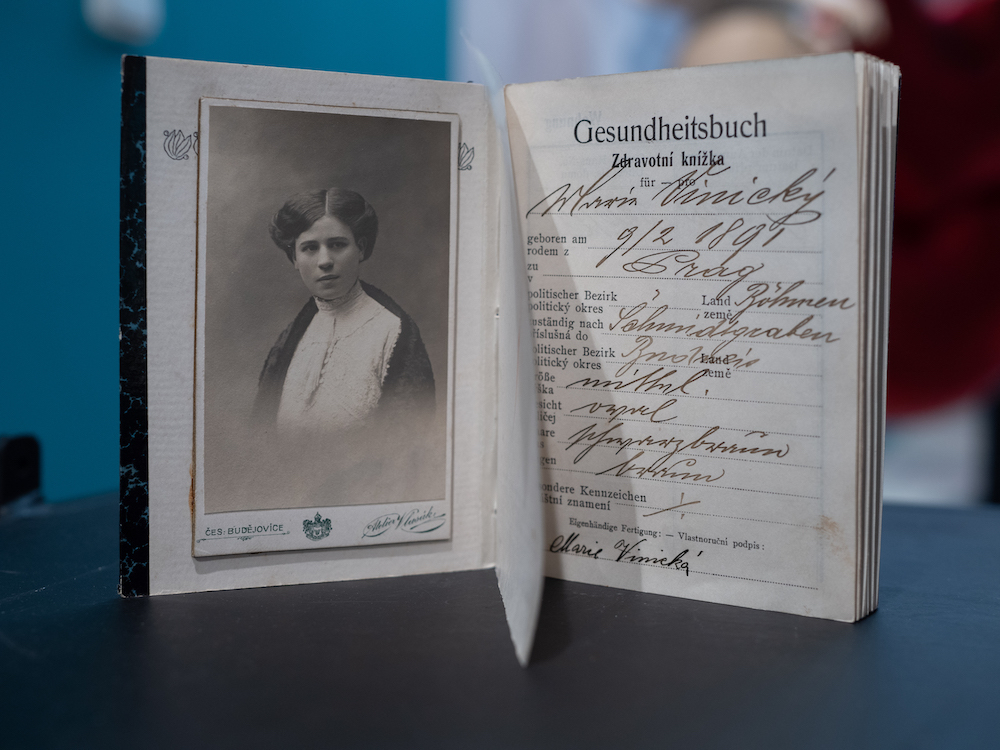 ČES. BUDĚJOVICE
Atelier
Gesundheitsbuch
Zdravotní knížka
für — pro
Marie Vinický
geboren am
rodem z
9/2 1891
zu
v
Prag
politischer Bezirk
politický okres
"
Land
země
Böhmen
zuständig nach
říslušná do
Schmidgraben
olitischer Bezirk
olitický okres
Land
země
röße
ška
mittel.
sicht
ičej
oval
are
s
schwarzbraun
gen
braun
ondere Kennzeichen
áštní znamení
Eigenhändige Fertigung: — Vlastnoruční podpis:
Marie Vinická